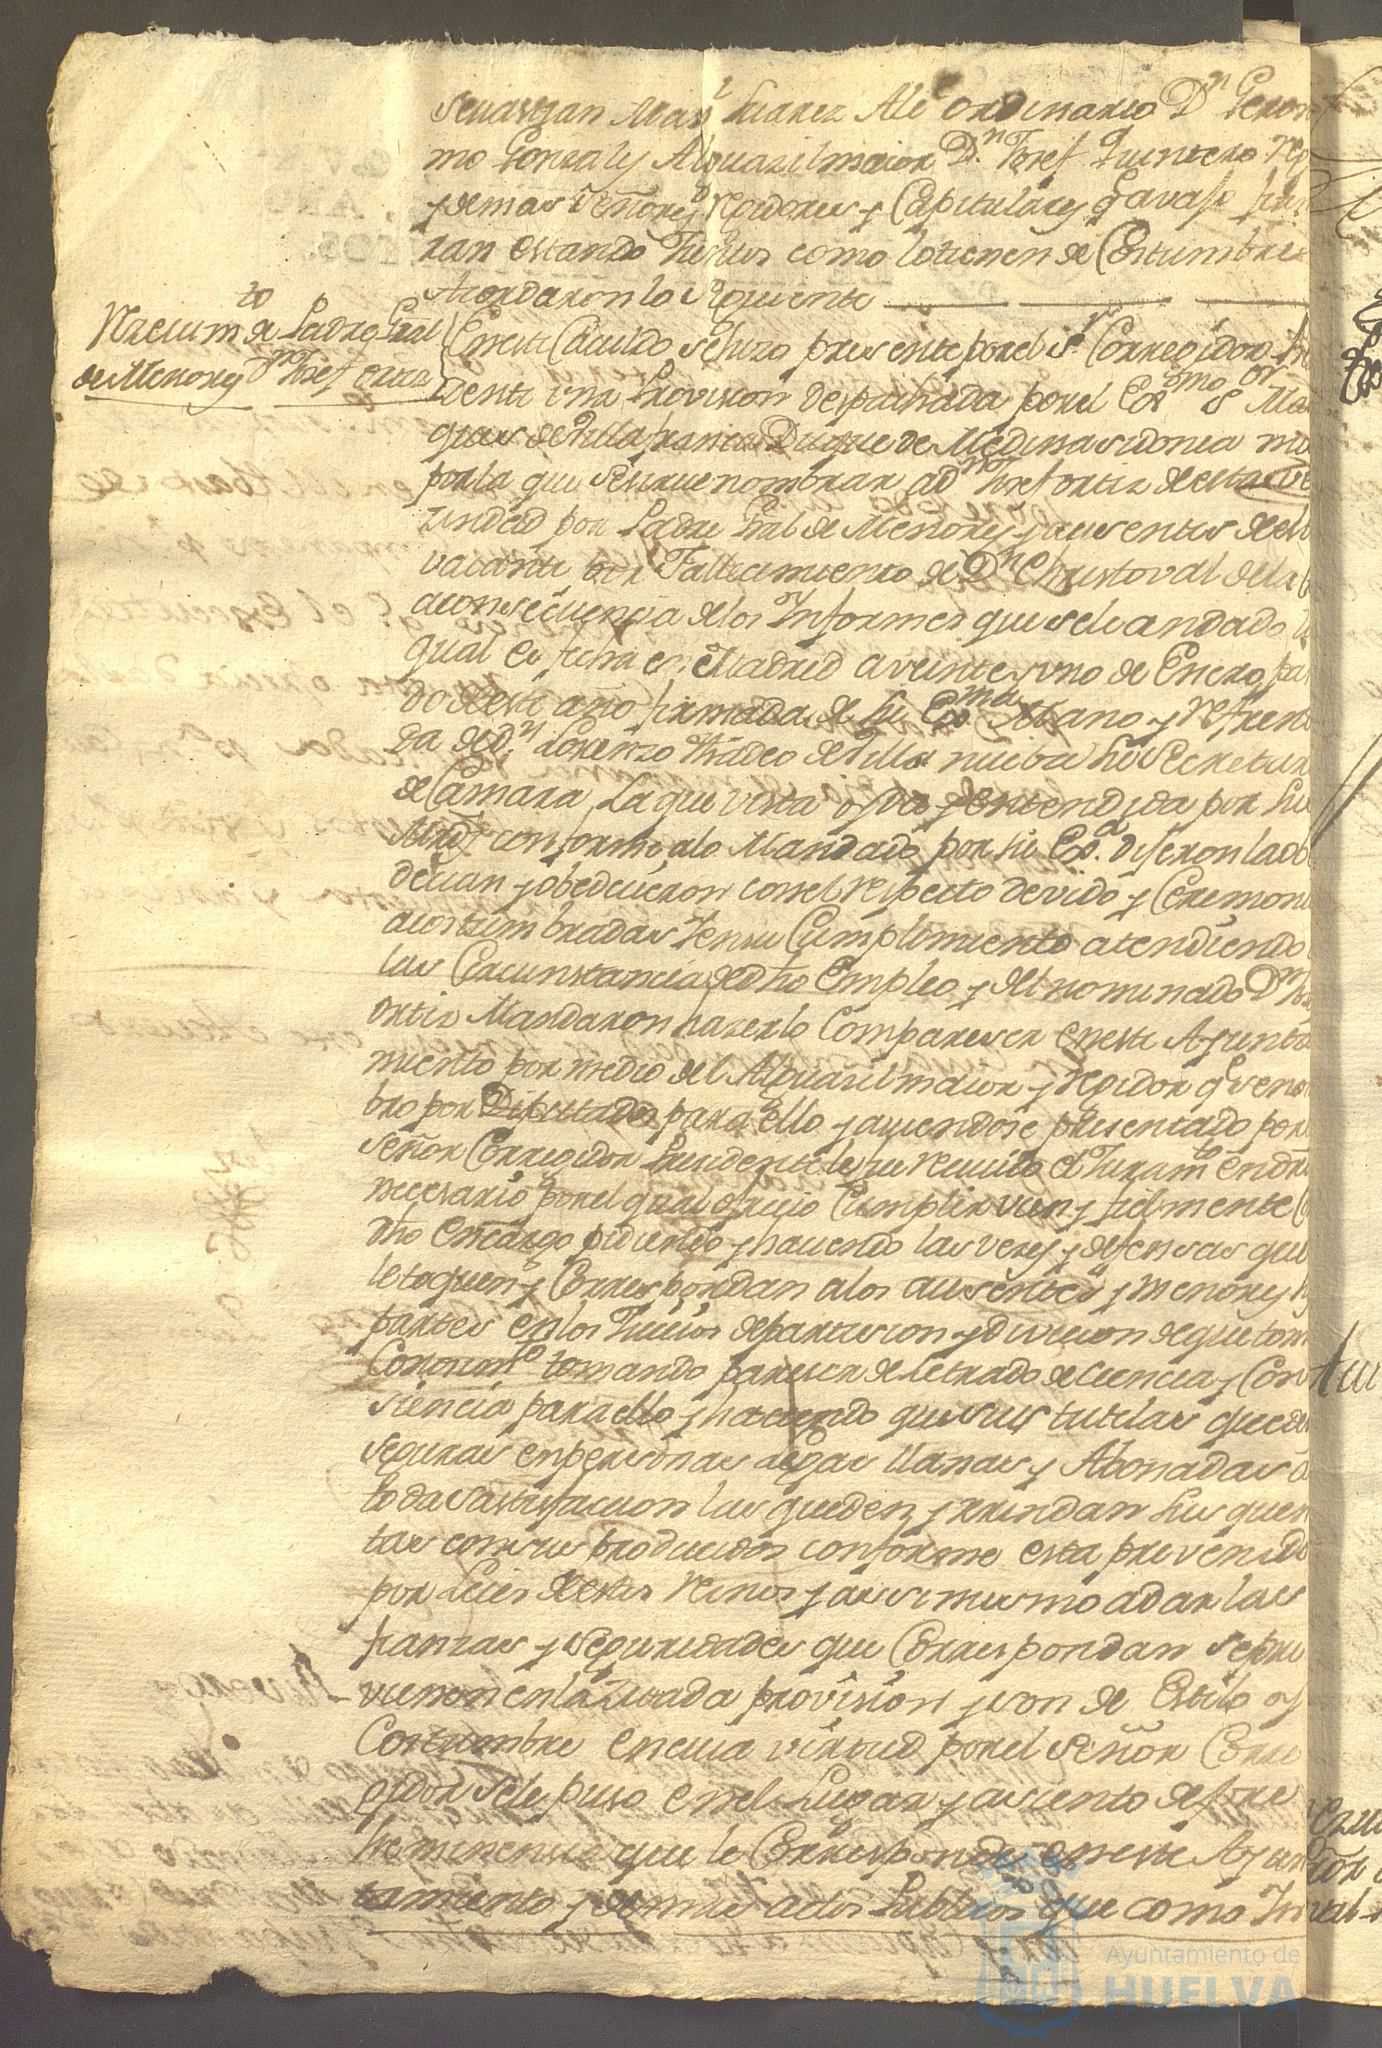 Sevastian Marn Suarez Alce ordinario Dn Geroni
mo Gonzales Alguazil maior Dn Josef Quintero
y demas Señores rexidores y Capitulares q avajo
ran estando Juntos como lo tienen de Costumbre
Acordaron lo siguiente
Nrecivimto de Padre Gral
de Menores Dn Josef Ortiz
En este Cavildo se hizo presente por el Sr Corregidor
dente una Provision despachada por el Exmo Sor Mar
ques de Villafranca Duque de Medinasidonia
por la que se sirve nombrar a Dn Josef ortiz de esta ve
zindad por Padre Gral de Menores y ausentes de ella
vacante por Fallecimiento de Dn Christoval de la
a consequencia de los Informes que se le an dado
qual es fecha en Madrid a veinte y uno de Enero pasa
do de este año firmada de su Exma Mano y refrenda
da de Dn Lorenzo Thadeo de Villa nueba su Secretario
de Camara, La que vista oyda y entendida por Sus
Mrds conforme a lo Mandado por su Exa. dijeron la obe
decian y obedecieron con el respecto devido y Ceremoni
acostumbradas Y en su Cumplimiento atendiendo
las Circunstancias de dho Empleo y del nominado Dn
Ortiz Mandaron hazerlo Compareser en este Ayunta
miento por medio del Alguazil maior y rexidor q se nom
bro por Diputados para ello y aviendose presentado por
señor Corregidor Presidente le fue recivido el Juramto en dro
necesario por el qual ofrecio Cumplir vien y fielmente
dho encargo pidiendo y haciendo las vezes y defensas que
le toquen y Correspondan a los ausentes y menores
partes en los Juicios de particion y division de que tome
Conocimto tomando pareser de letrado de ciencia y Con
siencia para ello y haciendo que sus tutelas queden
seguras en personas Legas llanas y Abonadas a
toda satisfacion las queden y rrindan sus quen
tas con sus productos conforme esta prevenido
por Leies de estos reinos y asi mismo a dar las
fianzas y seguridades que Correspondan se pre
vienen en la citada provision y son de Estilo y
Costumbre en cuia virtud por el señor Corre
gidor se le puso en el Lugar y asiento de pre
heminencia que le Corresponde en este Ayun
tamiento y demas actos Publicos que como
Ayuntamiento de
HUELVA